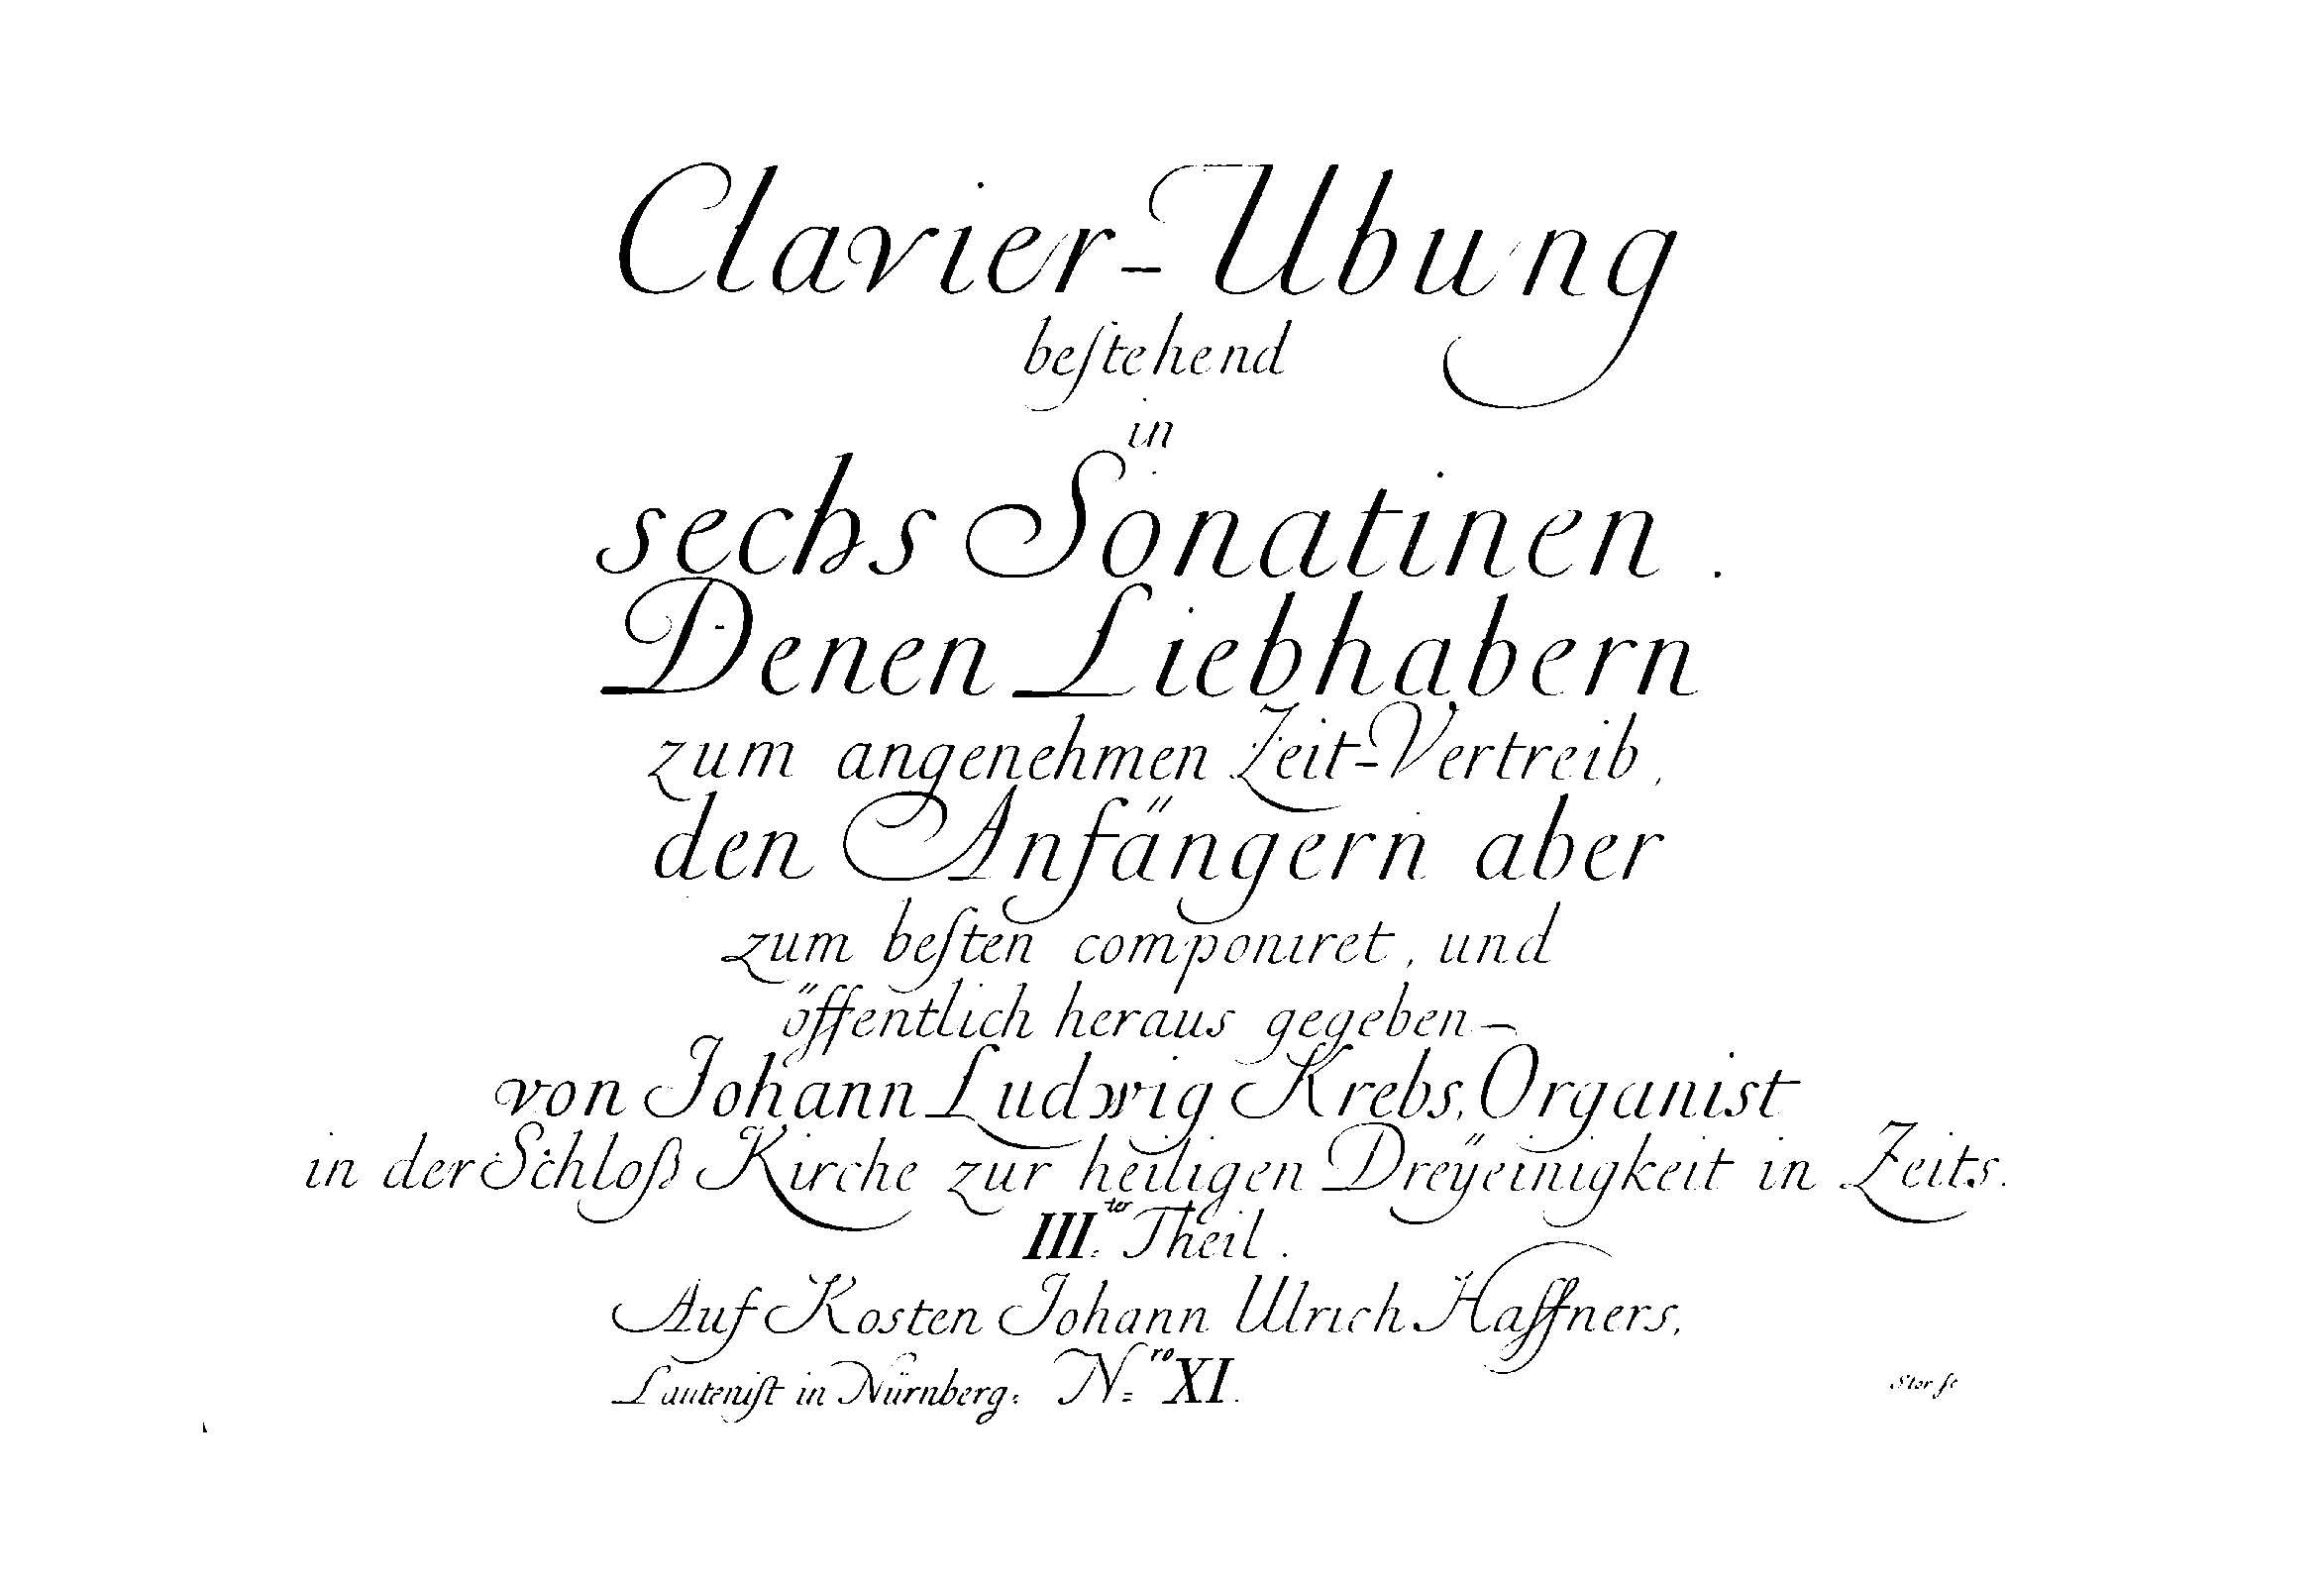 Clavier-Ubung
beſtehend
in
sechs Sonatinen.
Denen Liebhabern
zum angenehmen Zeit-Vertreib,
den Anfängern aber
zum beſten componiret, und
öffentlich heraus gegeben
von Johann Ludwig Krebs, Organist
in der Schloß Kirche zur heiligen Dreÿeinigkeit in Zeits.
III.ter Theil.
Auf Kosten Johann Ulrich Haffners,
Lauteniſt in Nürnberg. N.ro XI.
Stör sc